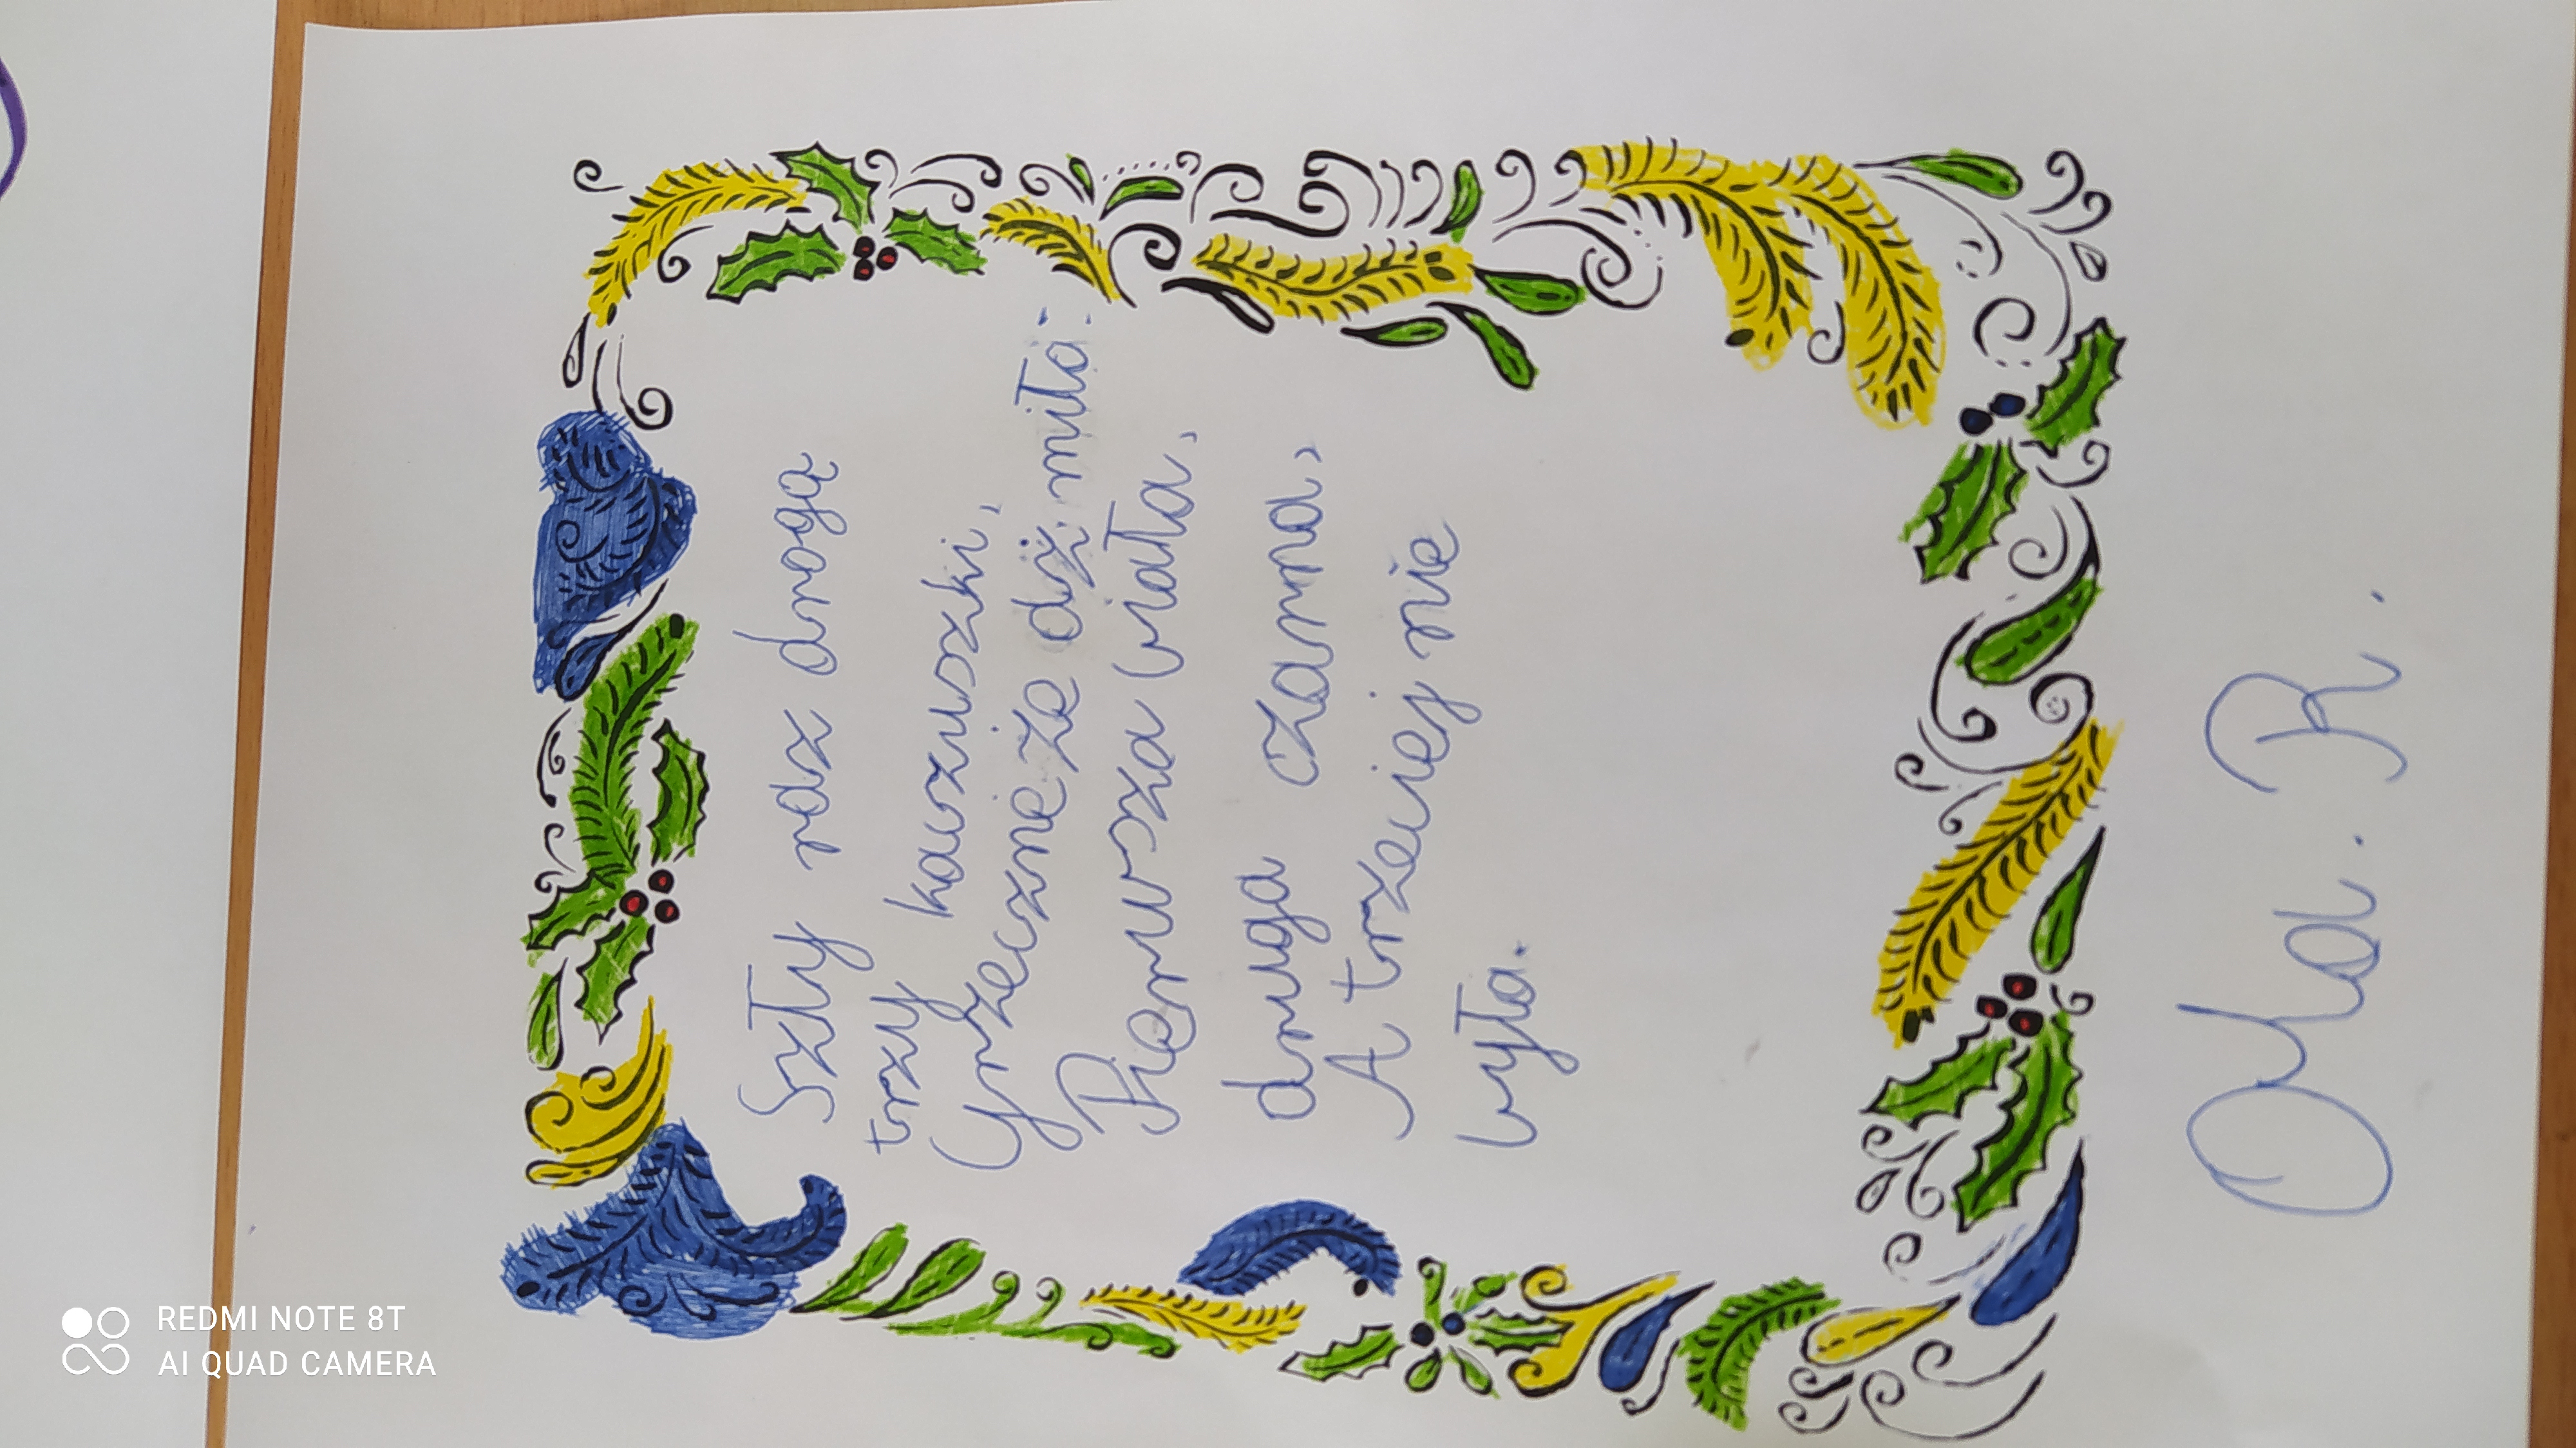 Szły raz drogą
trzy kaczuszki,
Grzecznie że aż miło:
Pierwsza biała,
druga czarna,
A trzeciej nie
było.
Ola. R.
REDMI NOTE 8T
AI QUAD CAMERA